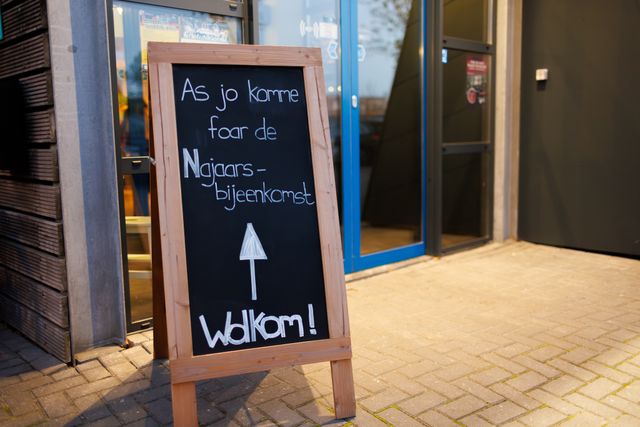 As jo komme
foar de
Najaars-
bijeenkomst
Wolkom!